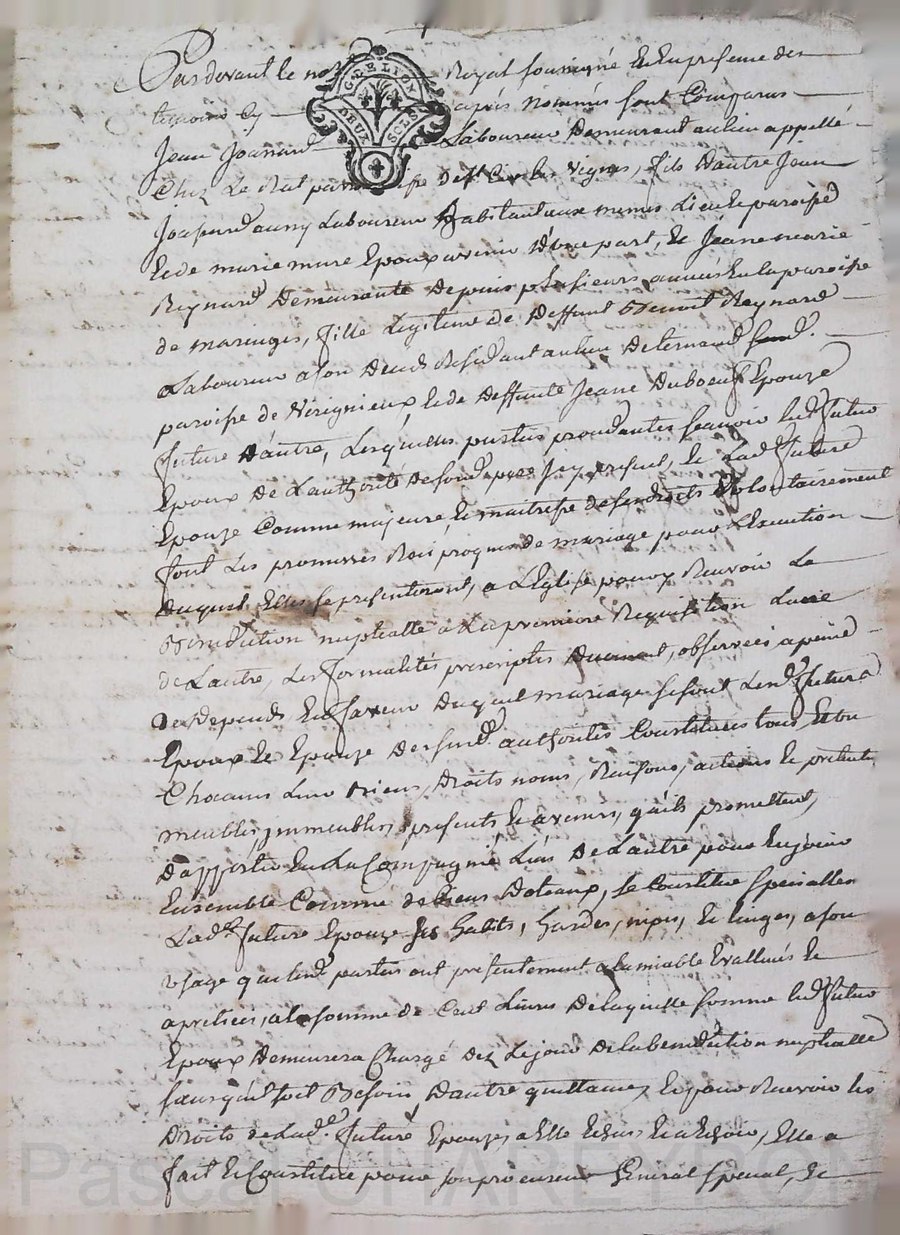 Pardevant le no Royal soussigné Et En presence des
temoins Cy apres Nommés sont Comparus
Jean Joanard Laboureur Demeurant au lieu appellé
Chez Le Rat paroisse de St Cir les Vignes, fils D'autre Jean
Joanard aussy Laboureur habitant aux memes Lieu Et paroisse
Et de marie mure Epoux avenir D'une part, Et Jeane marie
Reynard Demeurante Depuis plusieurs années En la paroisse
de maringes, fille Legitime de Deffunt Benoit Reynard
Laboureur a son Deceds Residant au lieu De
paroisse de Virignieux, Et de Deffunte Jeane Duboeuf Epouze
future D'autre, Lesquelles parties procedantes scavoir led. futur
Epoux De L'authorité de sond. pere Icy present, Et Lad. future
Epouze Comme majeure Et maitresse de ses droits Volontairement
font Les promesses Reciproques de mariage pour L'Execution
Duquel Elles se presenteront, a L'Eglise pour y Recevoir La
Benediction nuptialle a La premiere Requisition L'une
de L'autre, Les formalités prescriptes Duement, observées a peine
De Depends En faveur Duquel mariage se sont Lesd. futurs
Epoux Et Epouze De susd. authorités Constitués tous Et un
Chacuns Leur Biens, Droits noms, Raisons, actions Et pretentions
meubles, jmmeubles, presents Et avenirs, qu'ils promettent,
D'apporter En La Compagnie L'un De L'autre pour En jouir
Ensemble Comme de Biens Doteaux, se Constitue specialem
Lad.e future Epouze ses habits, hardes, nipes, Et linges, a son
usage que lesd. parties ont presentement a lamiable Evallués Et
apretiés, a la somme de Cent Livres De laquelle somme led. futur
Epoux Demeurera Chargé Dez Le jour De la benediction nuptialle
sans qu'il soit Besoin D'autre quittance, Et pour Recevoir les
Droits de Lad.e future Epouze, a Elle Echus Et a Echoir, Elle a
fait Et Constitue pour son procureur General special, Et
GNE LYON
DEUX SOLS
Pascal CHAREYRON